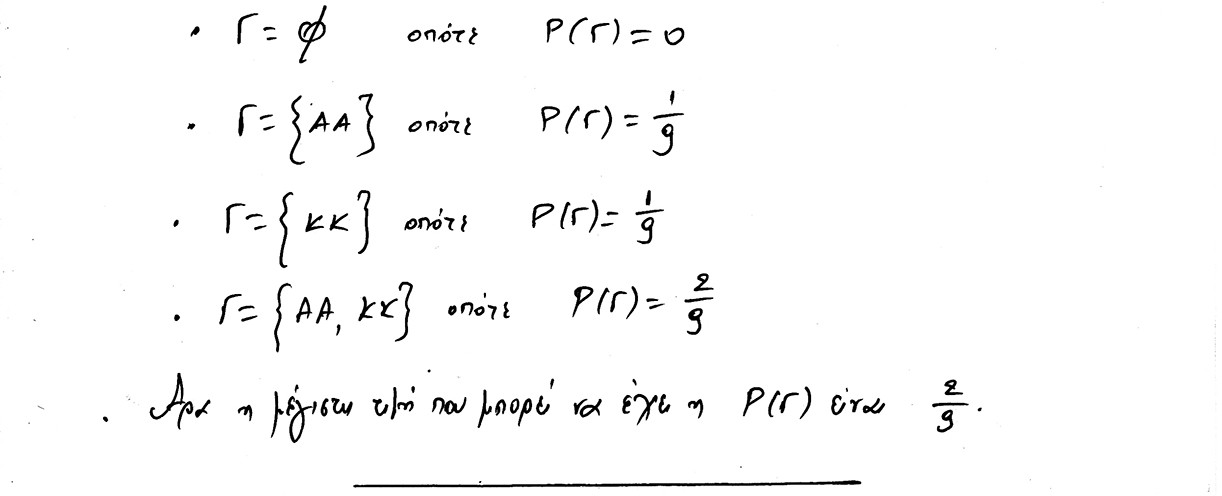 • Γ = ∅ οπότε P(Γ) = 0
• Γ = {AA} οπότε P(Γ) = 1/9
• Γ = {KK} οπότε P(Γ) = 1/9
• Γ = {AA, KK} οπότε P(Γ) = 2/9
• Άρα η μέγιστη τιμή που μπορεί να έχει η P(Γ) είναι 2/9.